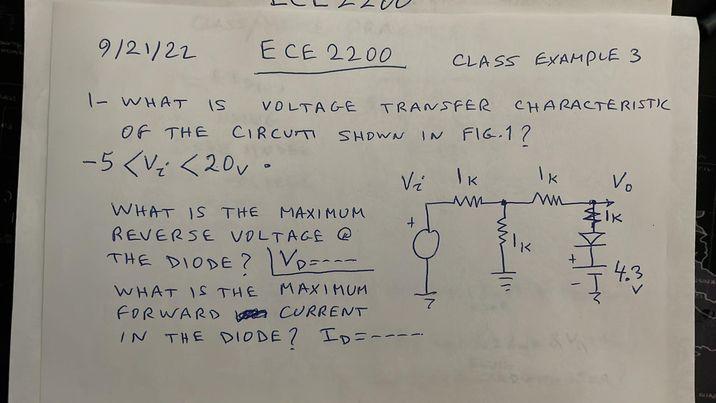 9/21/22 ECE 2200 CLASS EXAMPLE 3
1- WHAT IS VOLTAGE TRANSFER CHARACTERISTIC
OF THE CIRCUIT SHOWN IN FIG.1?
-5 < Vi < 20v.
Vi 1K 1K Vo
WHAT IS THE MAXIMUM
REVERSE VOLTAGE @
THE DIODE? VD=----
WHAT IS THE MAXIMUM
FORWARD CURRENT
IN THE DIODE? ID=-----
+ 1K 1K
+ - 4.3
V